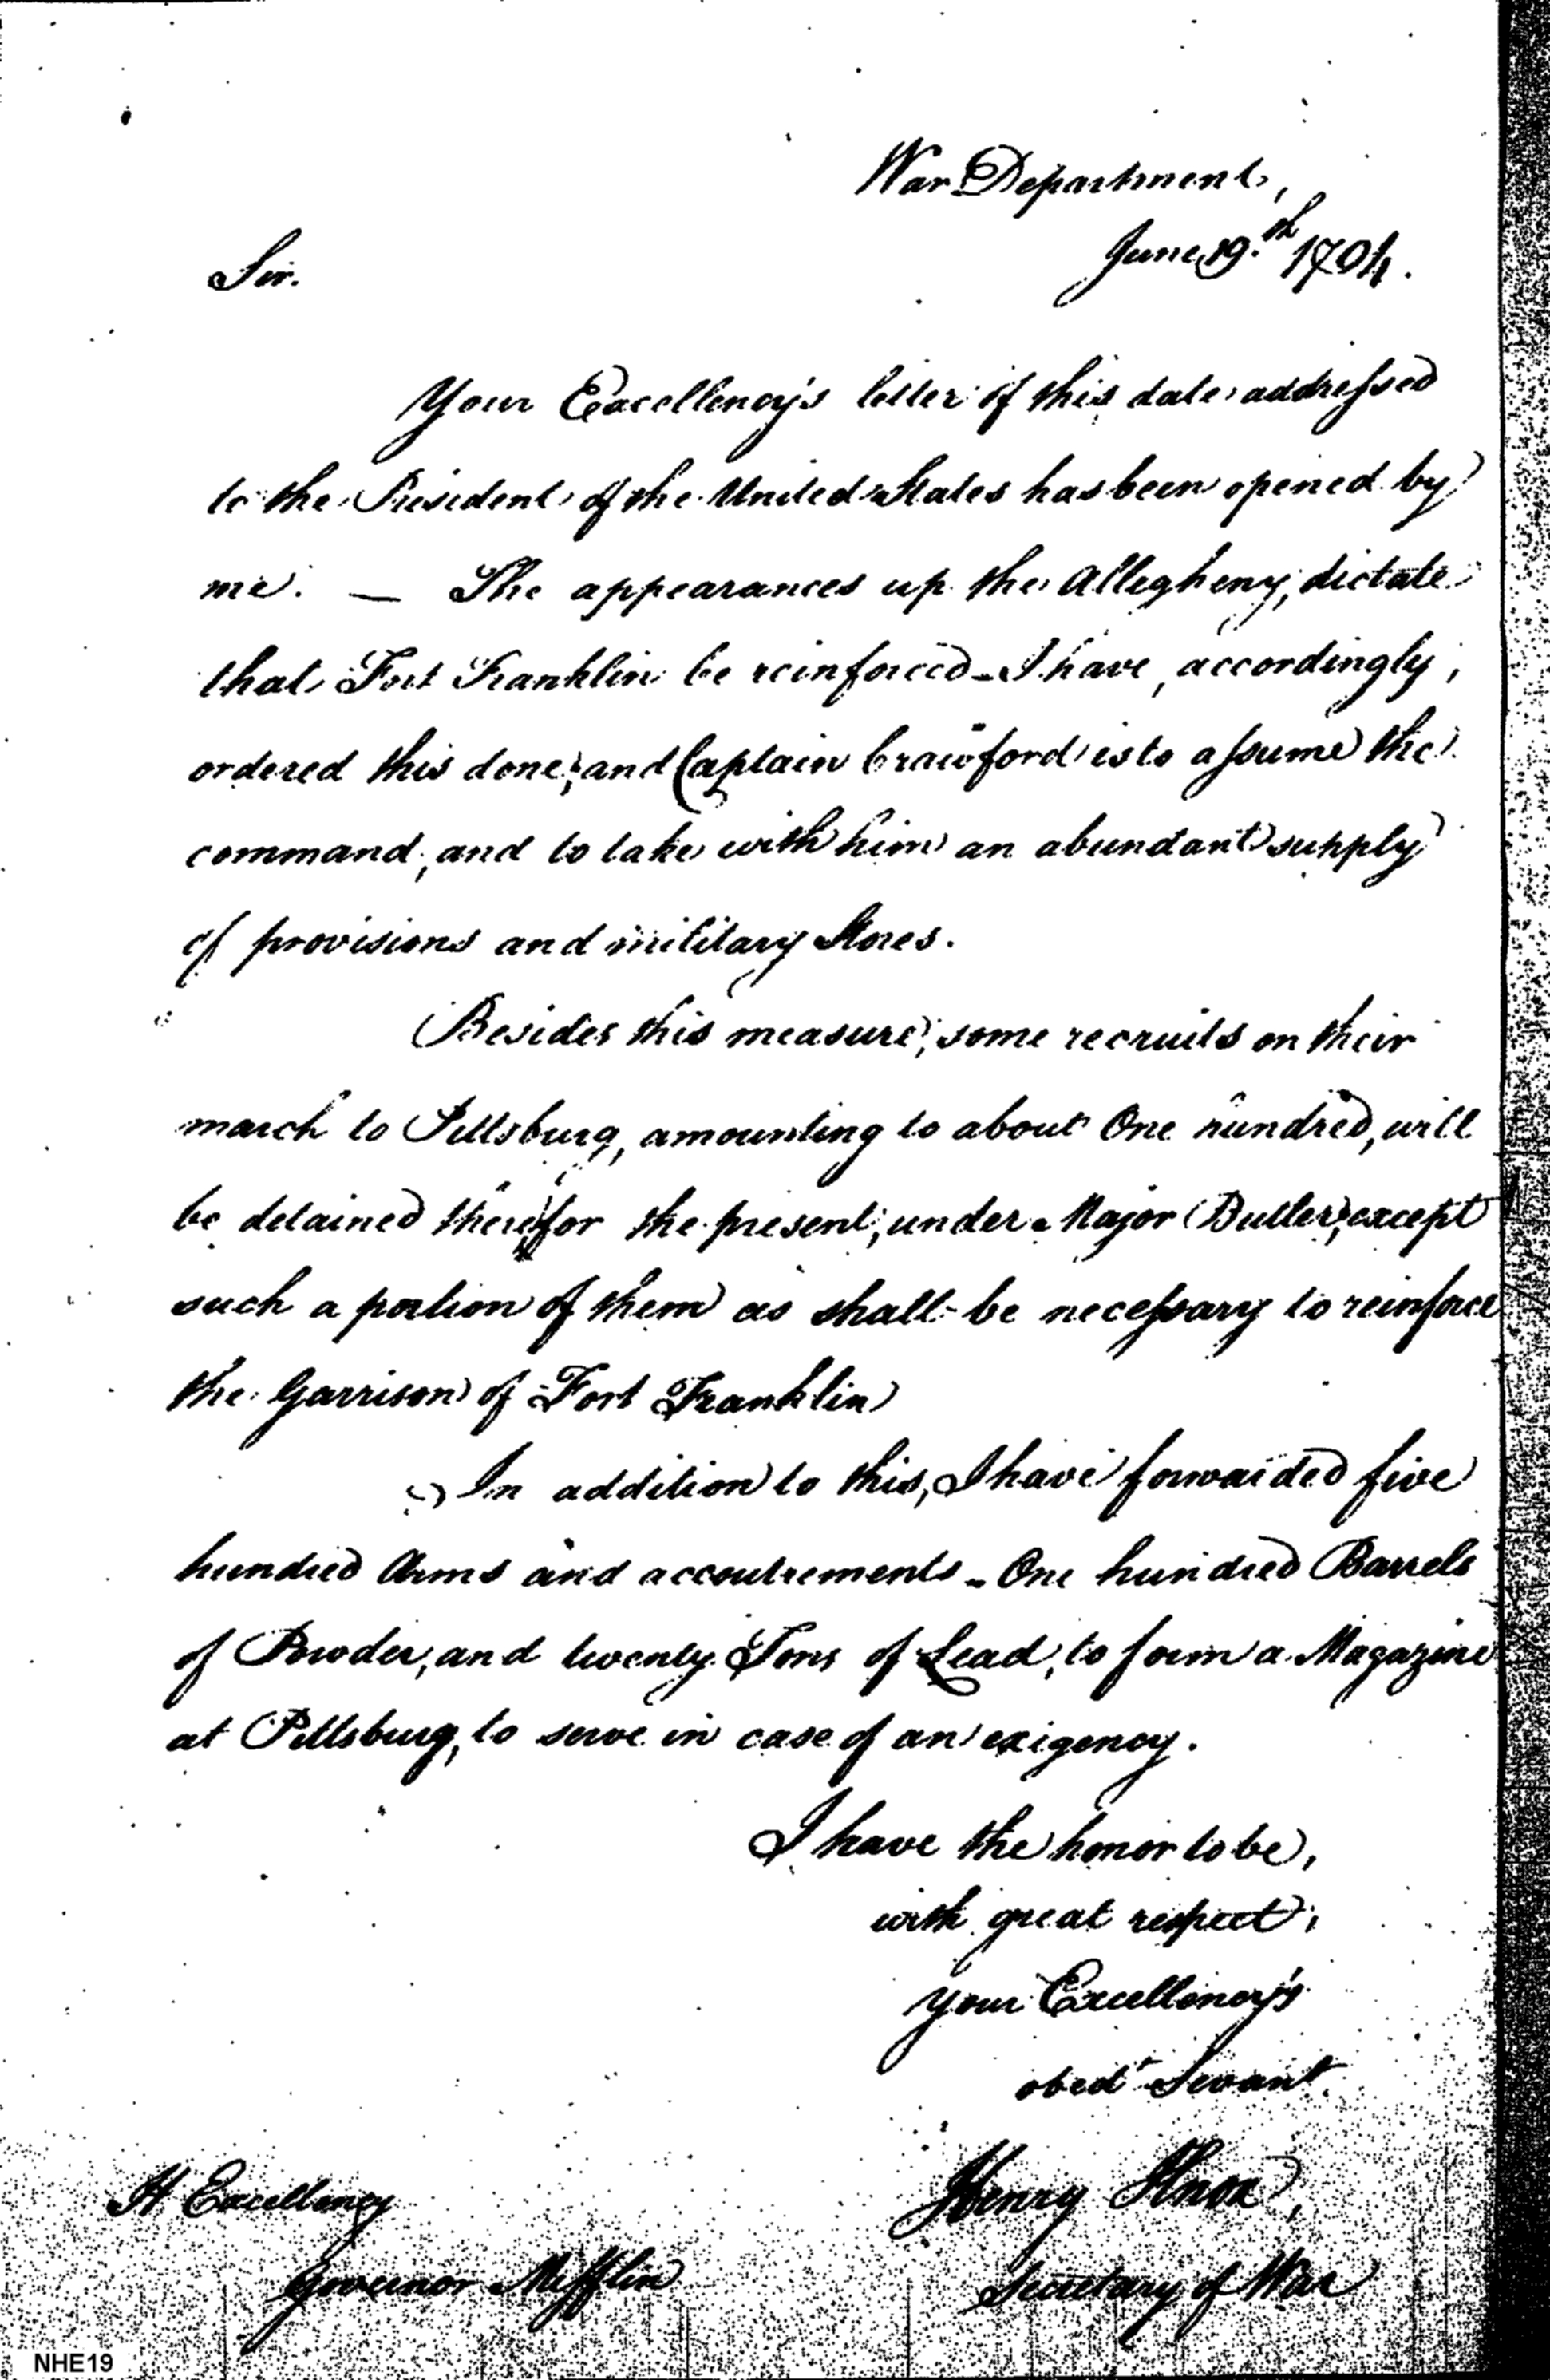 War Department,
June 19.th 1794.
Sir.
Your Excellency's letter of this date addressed
to the President of the United States has been opened by
me. — The appearances up the Allegheny, dictate
that Fort Franklin be reinforced - I have, accordingly,
ordered this done; and Captain Crawford is to assume the
command, and to take with him an abundant supply
of provisions and military Stores.
Besides this measure, some recruits on their
march to Pittsburg, amounting to about One hundred, will
be detained there, for the present, under Major Butler, except
such a portion of them as shall be necessary to reinforce
the Garrison of Fort Franklin
In addition to this, I have forwarded five
hundred Arms and accoutrements - One hundred Barrels
of Powder, and twenty Tons of Lead, to form a Magazine
at Pittsburg, to serve in case of an exigency.
I have the honor to be,
with great respect,
Your Excellency's
obedt Servant
Henry Knox,
Secretary of War
H Excellency
Governor Mifflin
NHE19